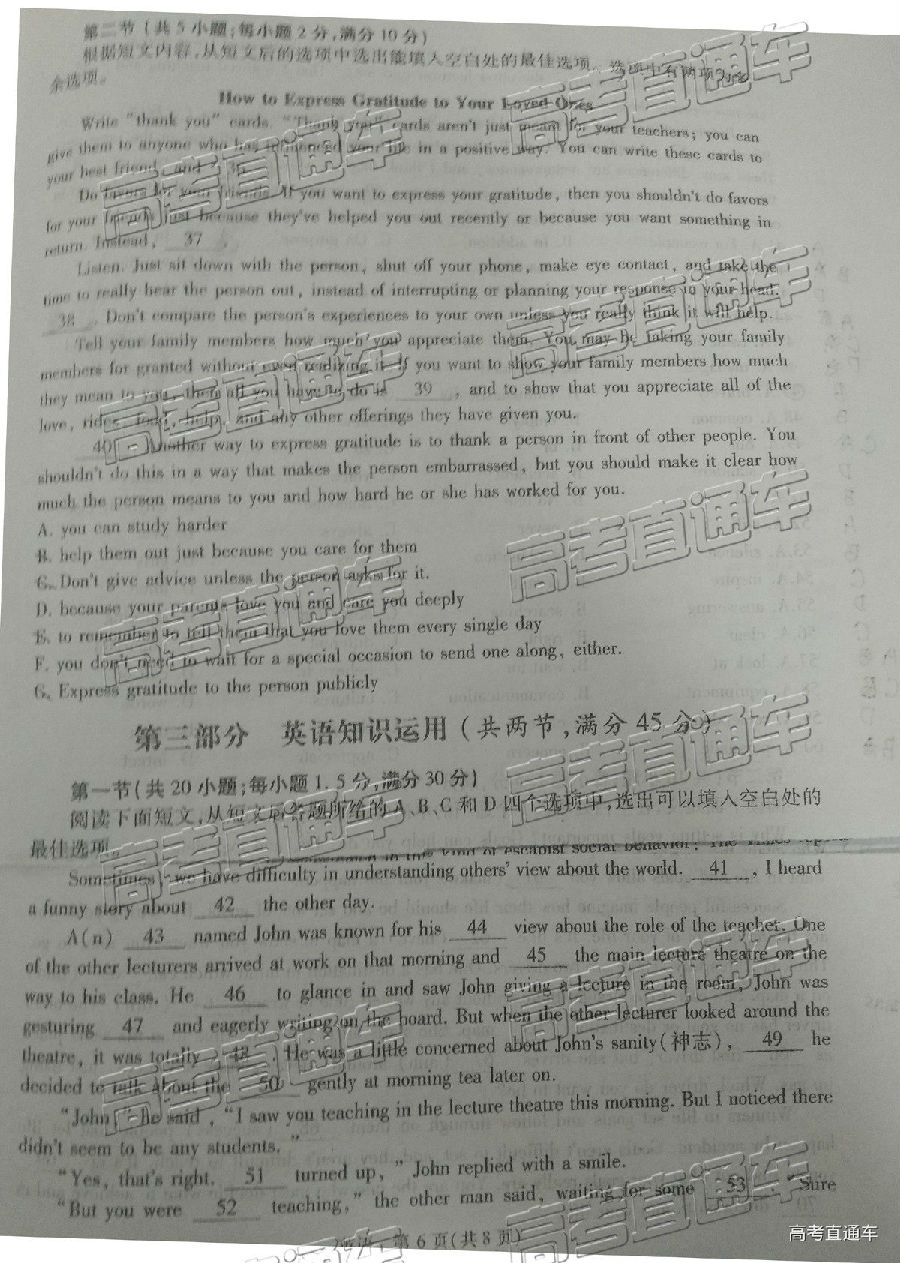 第二节(共5小题;每小题2分,满分10分)
根据短文内容,从短文后的选项中选出能填入空白处的最佳选项。选项中有两项为多
余选项。
How to Express Gratitude to Your Loved Ones
Write "thank you" cards. "Thank you" cards aren't just meant for your teachers; you can
give them to anyone who has influenced your life in a positive way. You can write these cards to
your best friend, and 36
Do favors for your friends. If you want to express your gratitude, then you shouldn't do favors
for your friends just because they've helped you out recently or because you want something in
return. Instead, 37 .
Listen. Just sit down with the person, shut off your phone, make eye contact, and take the
time to really hear the person out, instead of interrupting or planning your response in your head.
38 . Don't compare the person's experiences to your own unless you really think it will help.
Tell your family members how much you appreciate them. You may be taking your family
members for granted without even realizing it. If you want to show your family members how much
they mean to you, then all you have to do is 39 , and to show that you appreciate all of the
love, rides, food, help, and any other offerings they have given you.
40 Another way to express gratitude is to thank a person in front of other people. You
shouldn't do this in a way that makes the person embarrassed, but you should make it clear how
much the person means to you and how hard he or she has worked for you.
A. you can study harder
B. help them out just because you care for them
C. Don't give advice unless the person asks for it.
D. because your parents love you and care you deeply
E. to remember to tell them that you love them every single day
F. you don't need to wait for a special occasion to send one along, either.
G. Express gratitude to the person publicly
第三部分 英语知识运用(共两节,满分45分)
第一节(共20小题;每小题1.5分,满分30分)
阅读下面短文,从短文后各题所给的A、B、C和D四个选项中,选出可以填入空白处的
最佳选项。
Sometimes, we have difficulty in understanding others' view about the world. 41 , I heard
a funny story about 42 the other day.
A(n) 43 named John was known for his 44 view about the role of the teacher. One
of the other lecturers arrived at work on that morning and 45 the main lecture theatre on the
way to his class. He 46 to glance in and saw John giving a lecture in the room, John was
gesturing 47 and eagerly writing on the board. But when the other lecturer looked around the
theatre, it was totally 48 . He was a little concerned about John's sanity(神志), 49 he
decided to talk about the 50 gently at morning tea later on.
"John", he said, "I saw you teaching in the lecture theatre this morning. But I noticed there
didn't seem to be any students."
"Yes, that's right. 51 turned up," John replied with a smile.
"But you were 52 teaching," the other man said, waiting for some 53 . Sure
英语 第6页(共8页)
高考直通车